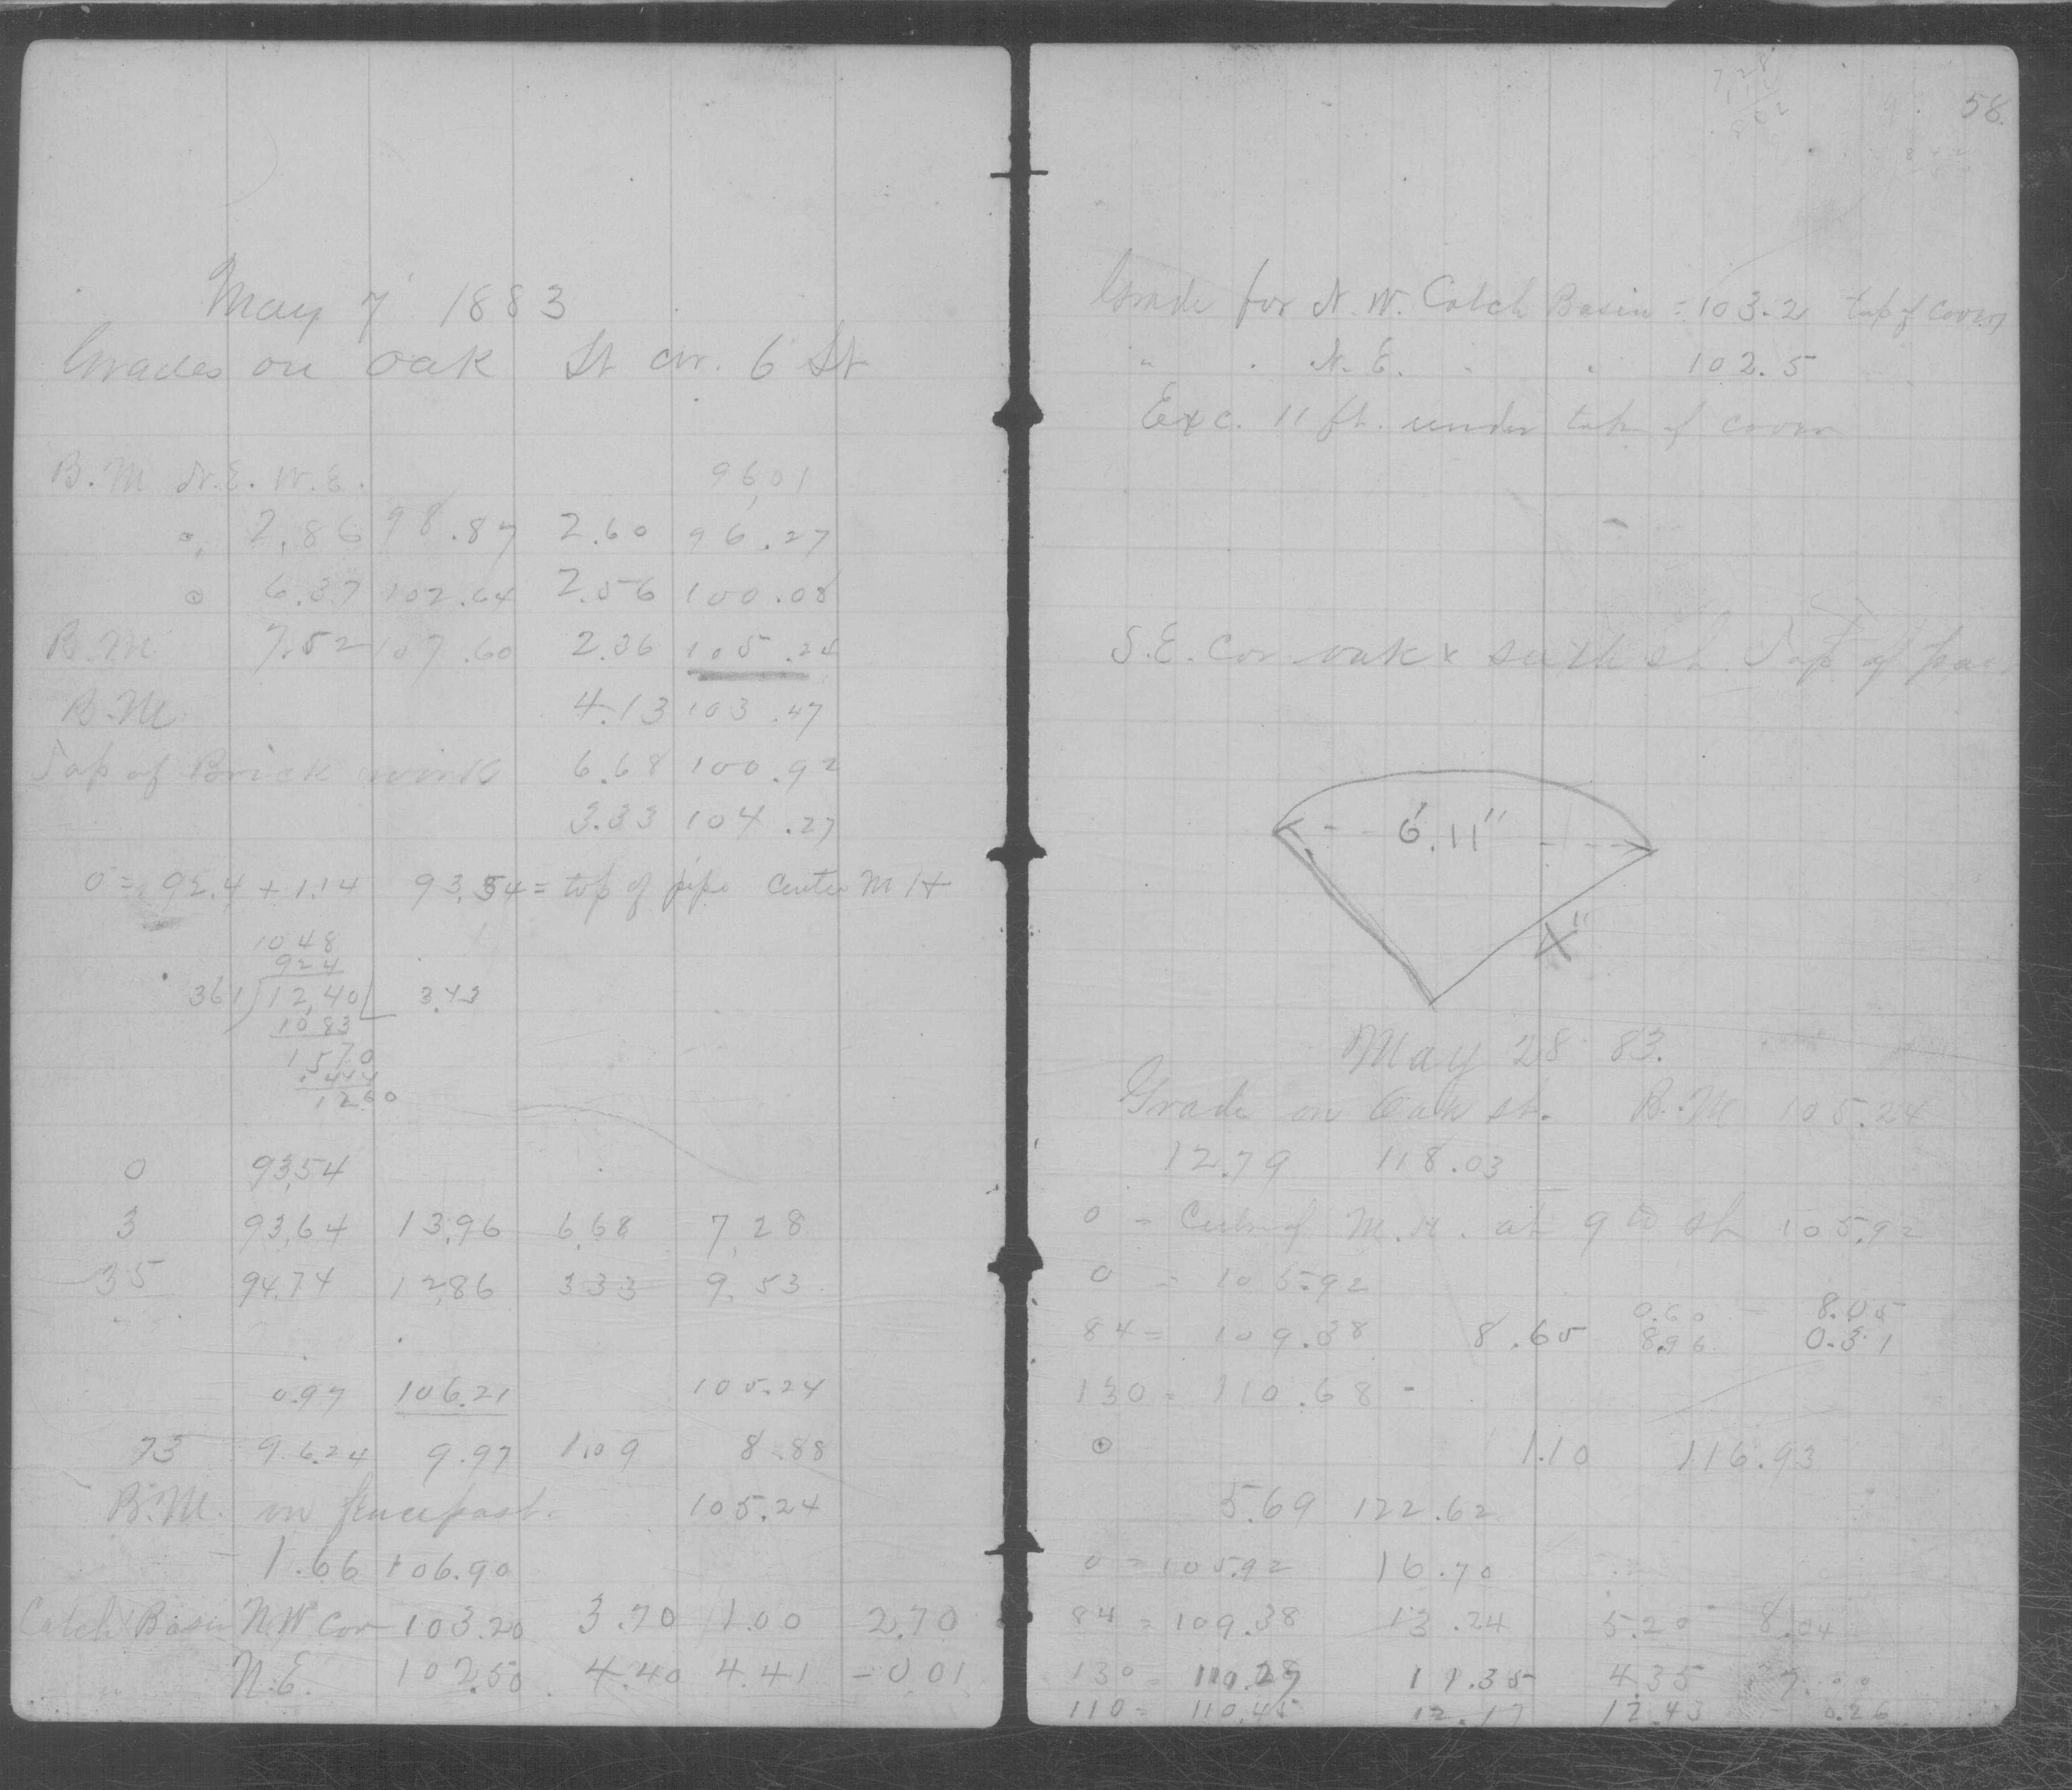 May 7 1883
Grades on Oak St cor. 6 St
B.M N.E. W.E. 96,01
2,86 98.87 2.60 96.27
⊙ 6.37 102.64 2.56 100.08
B.M 7.52 107.60 2.36 105.24
B.M 4.13 103.47
Top of Brick work 6.68 100.92
3.33 104.27
0 = 92.4 + 1.14 93,54 = top of pipe center M H
1048
924
361) 12,40 3.43
1083
1570
1444
1260
0 93,54
3 93,64 13,96 6,68 7,28
35 94,74 12,86 333 9.53
0.97 106.21 105.24
73 96.24 9.97 1.09 8.88
B.M. on fencepost. 105.24
1.66 106.90
Catch Basin N.W cor 103.20 3.70 1.00 2.70
N.E. 102.50 4.40 4.41 - 0.01
58.
7,28
Grade for N.W. Catch Basin = 103.2 top of cover
" " N.E. " " 102.5
Exc. 11 ft. under top of cover
S.E. Cor oak & sixth st. Top of
6.'11"
X"
May 28 83.
Grade on Oak st. B.M 105.24
12.79 118.03
0 = Cut of M.H. at 9th st 105.92
0 = 105.92
0.60 - 8.05
84 = 109.38 8.65 8.96 0.31
130 = 110.68 -
⊙ 1.10 116.93
5.69 122.62
0 = 105.92 16.70
84 = 109.38 13.24 5.20 8.04
130 = 110.27 11.35 4.35 7.00
110 = 110.45 12.17 12.43 - 0.26